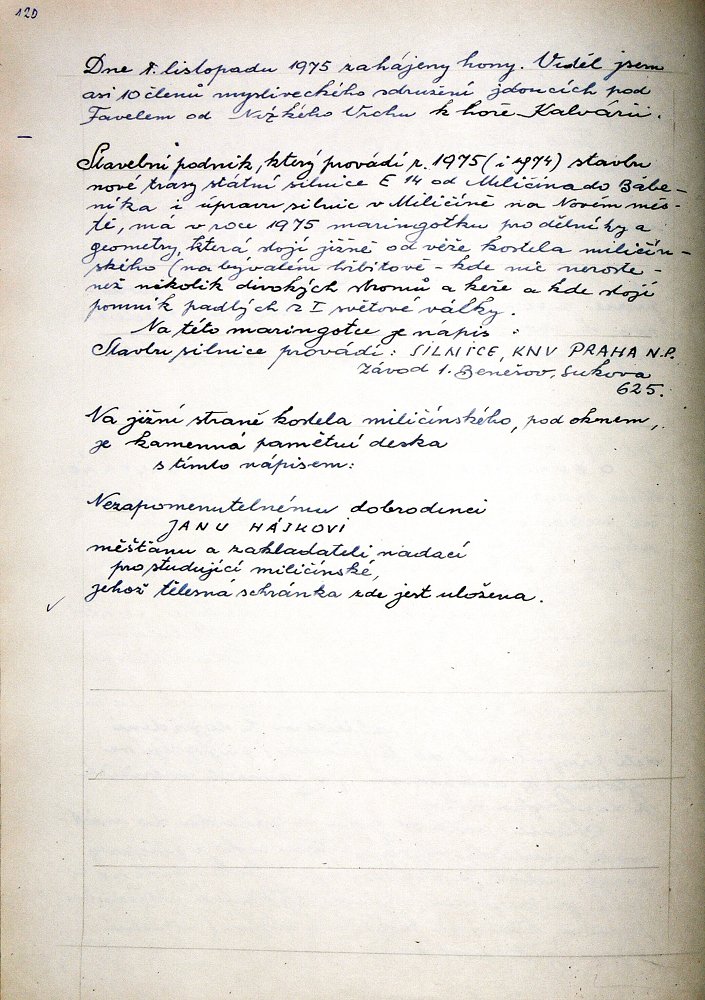 120
Dne 8. listopadu 1975 zahájeny hony. Viděl jsem
asi 10 členů mysliveckého sdružení jdoucích pod
Favelem od Nízkého Vrchu k hoře Kalvárii.
Stavební podnik, který provádí r. 1975 (i 1974) stavbu
nové trasy státní silnice E 14 od Miličína do Bábe-
níka i úpravu silnic v Miličíně na Novém měs-
tě, má v roce 1975 maringotku pro dělníky a
geometry, která stojí jižně od věže kostela miličín-
ského (na bývalém hřbitově - kde nic neroste -
než několik divokých stromů a keře a kde stojí
pomník padlých z I světové války.
Na této maringotce je nápis :
Stavbu silnice provádí: SILNICE, KNV PRAHA N.P.
závod 1. Benešov, Sukova
625.
Na jižní straně kostela miličínského, pod oknem,
je kamenná pamětní deska
s tímto nápisem:
Nezapomenutelnému dobrodinci
JANU HÁJKOVI
měšťanu a zakladateli nadací
pro studující miličínské,
jehož tělesná schránka zde jest uložena.